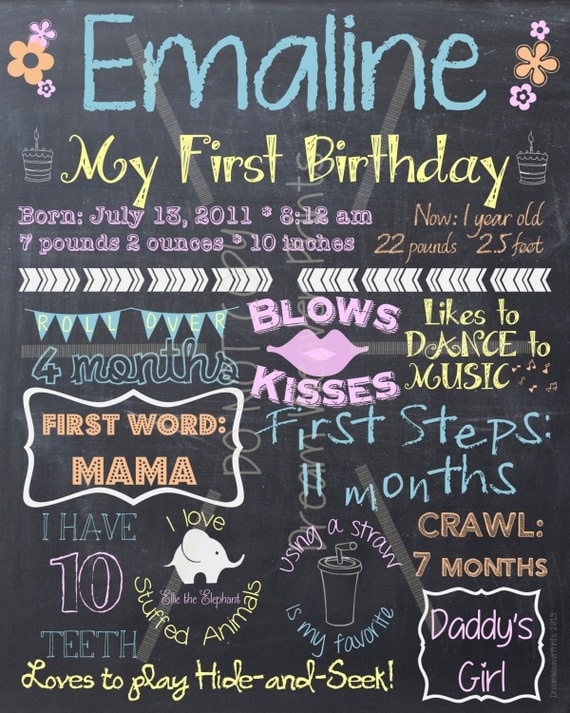 Emaline
My First Birthday
Born: July 13, 2011 * 8:12 am
7 pounds 2 ounces * 10 inches
Now: 1 year old
22 pounds 2.5 feet
ROLL OVER
4 months
BLOWS
KISSES
Likes to
DANCE to
MUSIC
FIRST WORD:
MAMA
First Steps:
11 months
I HAVE
10
TEETH
I love
Ellie the Elephant
Stuffed Animals
using a straw
is my favorite
CRAWL:
7 MONTHS
Daddy's
Girl
Loves to play Hide-and-Seek!
DO NOT COPY
Dream Weaver Prints